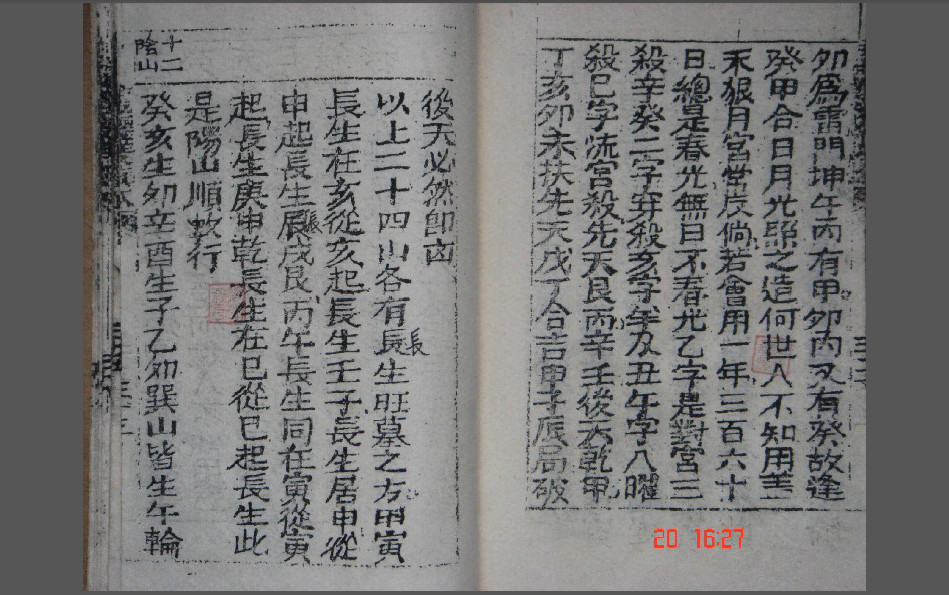 夘為雷門坤午內有甲夘內又有癸故逢
癸甲合日月光照之造何世人不知用盖
禾狠月宮堂辰倘若會用一年三百六十
日總是春光無日不春光乙字是對宮三
殺辛癸二字弁殺亥字年及丑午字八曜
殺巳字流宮殺先天艮丙辛壬後天乾甲
丁亥夘未扶先天戊丁合吉申子辰局破
後天必然卽凶
以上二十四山各有長生旺墓之方甲寅
長
長生在亥從亥起長生壬子長生居申從
申起長生辰戌艮丙午長生同在寅從寅
起長生庚申乾長生在巳從巳起長生此
是陽山順數行
十二
陰山
癸亥生夘辛酉生子乙夘巽山皆生午輪
20 16:27